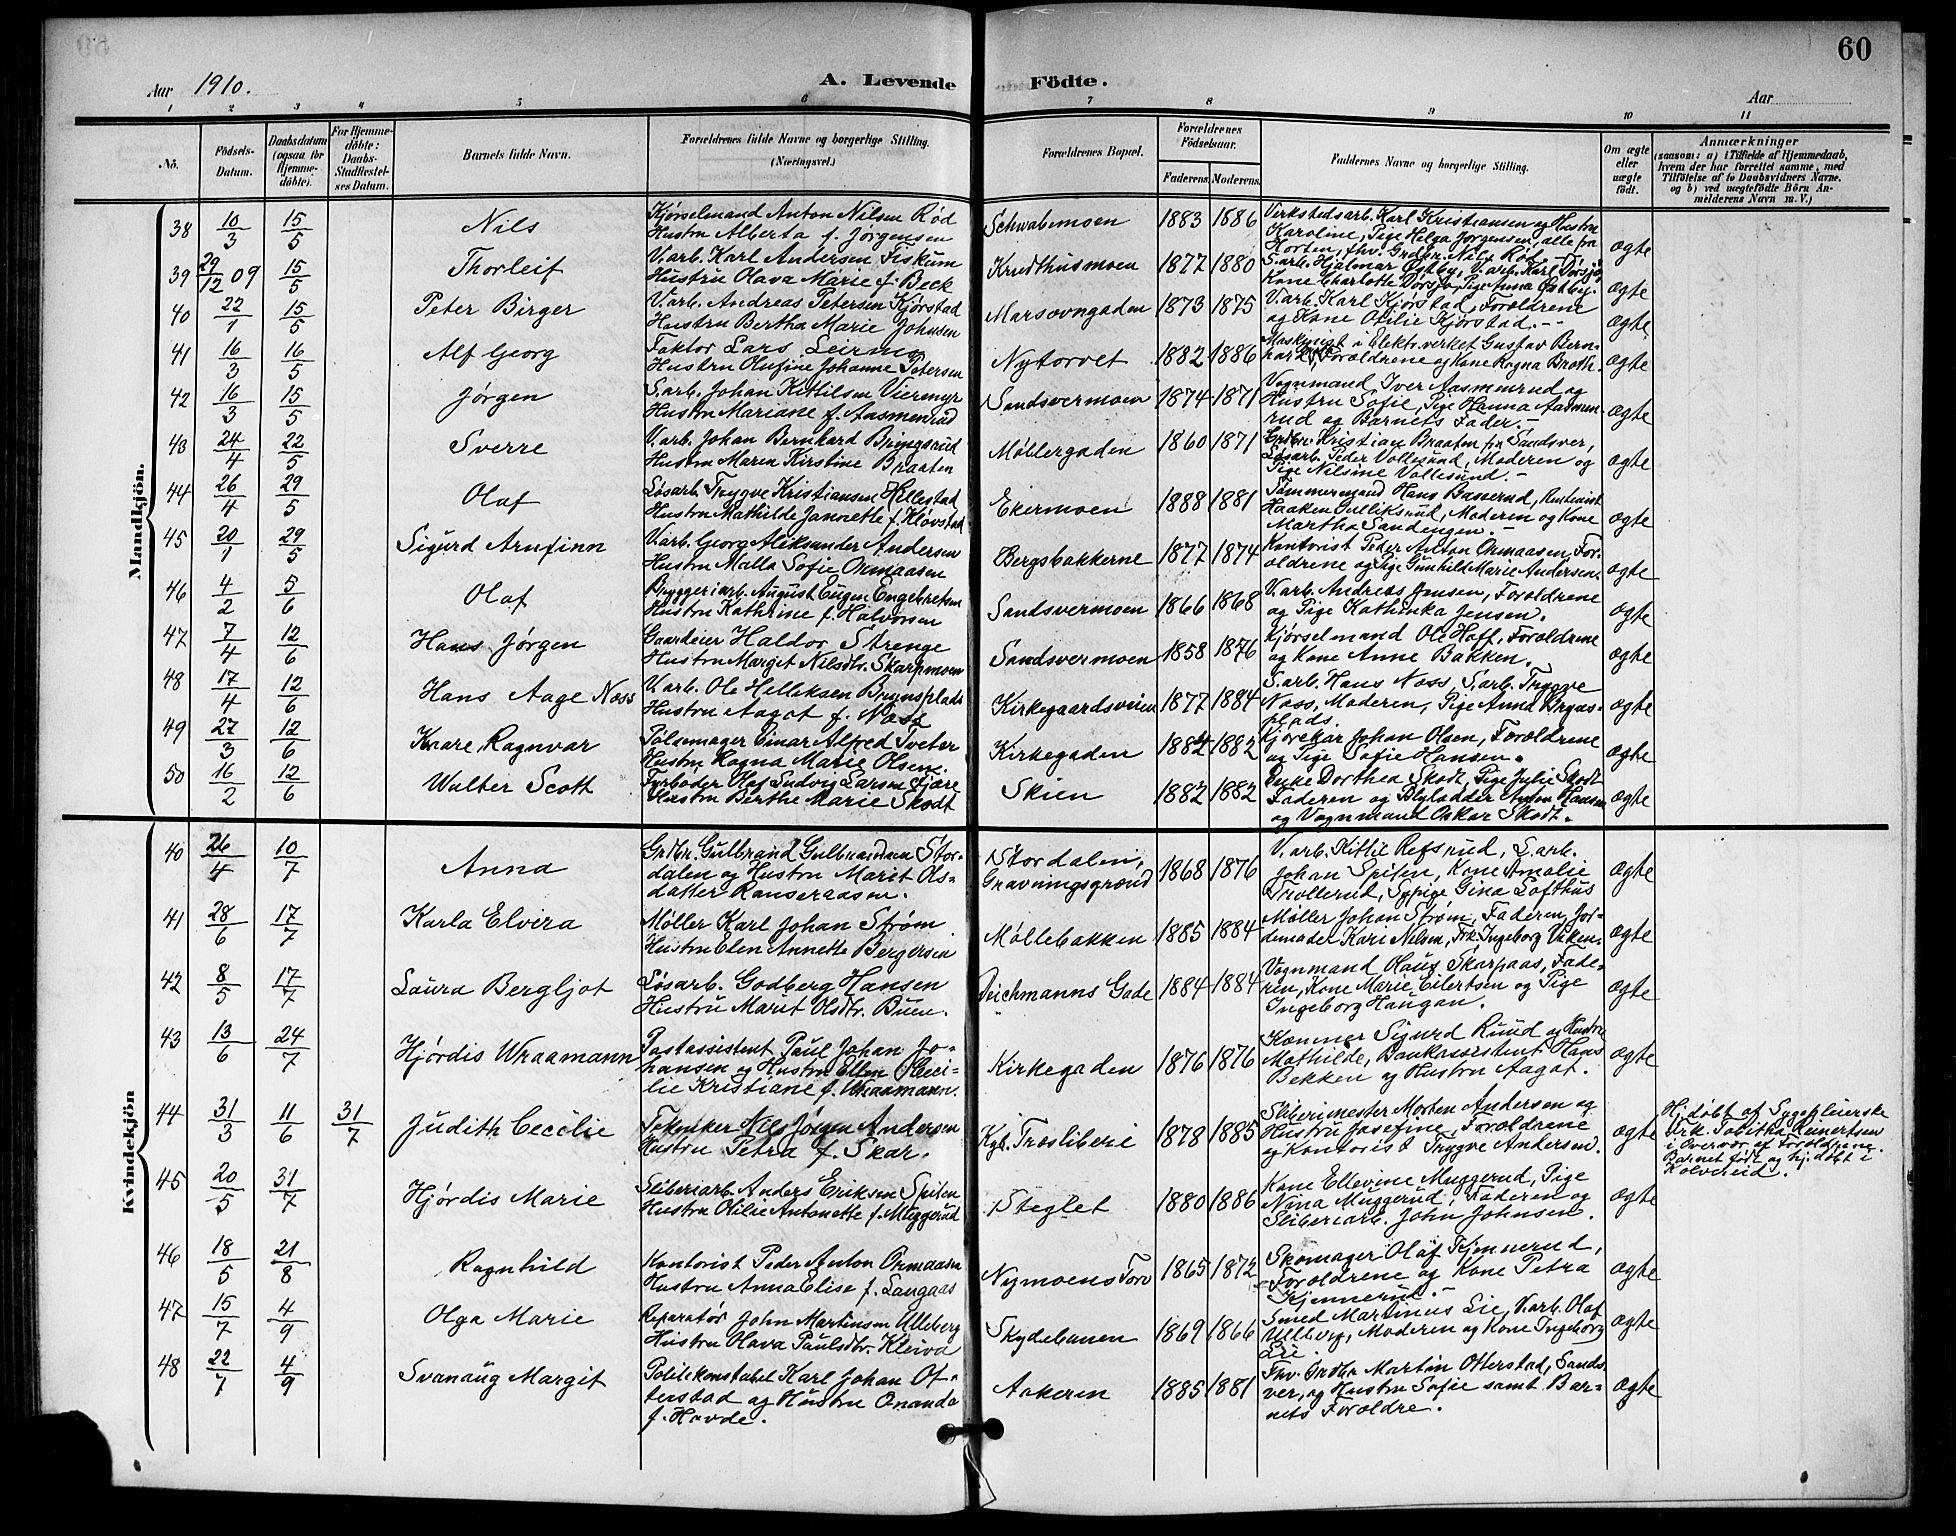 60
Aar 1910.
A. Levende Födte.
Aar
1 2 3 4 5 6 7 8 9 10 11
No.
Födsels-Datum.
Daabsdatum (ogsaa for Hjemme-döbte).
For Hjemme-döbte: Daabs-Stadfæstel-ses Datum.
Barnets fulde Navn.
Forældrenes fulde Navne og borgerlige Stilling. (Næringsvei.)
Forældrenes Bopæl.
Forældrenes Födselsaar.
Faderens. Moderens.
Faddernes Navne og borgerlige Stilling.
Om ægte eller uægte födt.
Anmærkninger
(saasom: a) i Tilfælde af Hjemmedaab,
hvem der har forrettet samme, med
Tilföielse af to Daabsvidners Navne,
og b) ved uægtefödte Börn An-
melderens Navn m. V.)
Mandkjön.
38 10/3 15/5 Nils
Kjørselmand Anton Nilsen Rød
Hustru Alberta f. Jørgensen
Schwabemoen 1883 1886
Verkstedsarb. Karl Kristiansen og Hustru
Karoline, Pige Helga Jørgensen, alle fra
Horten, fhv. Grdbr. Nils Rød.
ægte
39 29/12 09 15/5 Thorleif
V.arb. Karl Andersen Fiskum
Hustru Olava Marie f. Beck
Krudthusmoen 1877 1880
S.arb. Hjalmar Østby, V.arb. Karl Dørsjø,
Kone Charlotte Dørsjø, Pige Anna Østby.
ægte
40 22/1 15/5 Peter Birger
V.arb. Andreas Petersen Kjørstad
Hustru Bertha Marie Johnsen
Marsovngaden 1873 1875
V.arb. Karl Kjørstad, Forældrene
og Kone Otilie Kjørstad.
ægte
41 16/3 16/5 Alf Georg
Faktor Lars Leirnes
Hustru Olufine Johanne Petersen
Nytorvet 1882 1886
Maskinist i Elektr.virket Gustav Bern-
hard, Forældrene og Kone Ragna Broth.
ægte
42 16/3 15/5 Jørgen
S.arb. Johan Kittilsen Viermyr
Hustru Mariane f. Aasmenrud
Sandsvermoen 1874 1871
Vognmand Iver Aasmenrud og
Hustru Sofie, Pige Hanna Aasmen-
rud og Barnets Fader.
ægte
43 24/4 22/5 Sverre
V.arb. Johan Bernhard Bryggerud
Hustru Maren Kirstine Braaten
Møllergaden 1860 1871
Grdbr. Kristian Braaten fra Sandsver,
Løsarb. Peder Vollesund, Moderen og
Pige Nilsine Vollesund.
ægte
44 26/4 29/5 Olaf
Løsarb. Trygve Kristiansen Hellestad
Hustru Mathilde Jannette f. Kløvstad
Ekermoen 1888 1881
Tømmermand Hans Basserud, Rentenist
Haaken Gulliksrud, Moderen og Kone
Martha Sandengen.
ægte
45 20/1 29/5 Sigurd Arnfinn
V.arb. Georg Aleksander Andersen
Hustru Malla Sofie Onmaasen
Bergsbakkerne 1877 1874
Kontorist Peder Anton Onmaasen, For-
ældrene og Pige Gunhild Marie Andersen.
ægte
46 4/2 5/6 Olaf
Bryggeriarb. August Eugen Engebretsen
Hustru Kathrine f. Halvorsen
Sandsvermoen 1866 1868
V.arb. Andreas Jensen, Forældrene
og Pige Kathinka Jensen.
ægte
47 7/4 12/6 Hans Jørgen
Gaardeier Haldor Strenge
Hustru Margit Nilsdtr. Skarpmoen
Sandsvermoen 1858 1876
Kjørselmand Ole Hoft, Forældrene
og Kone Anne Bakken.
ægte
48 17/4 12/6 Hans Aage Næss
V.arb. Ole Helleksen Brynsplads
Hustru Aagot f. Næss
Kirkegaardsveien 1877 1884
S.arb. Hans Næss, S.arb. Trygve
Næss, Moderen, Pige Anna Bryns-
plads.
ægte
49 27/3 12/6 Kaare Ragnvar
Pølsemager Einar Alfred Tveter
Hustru Ragna Marie Olsen.
Kirkegaden 1882 1882
Kjørekar Johan Olsen, Forældrene
og Pige Sofie Hansen.
ægte
50 16/2 12/6 Walter Scott
Fyrbøder Olaf Ludvig Larsen Fjære
Hustru Berthe Marie Skodt
Skien 1882 1882
Enke Dorthea Skodt, Pige Julie Skodt
Faderen og Blyladder Anton Hansen
og Vognmand Oskar Skodt.
ægte
Kvindekjön
40 26/4 10/7 Anna
Grdbr. Gulbrand Gulbrandsen Stor-
dalen og Hustru Marit Ols-
datter Ranseraasen.
Stordalen, Gravningsgrend 1868 1876
V.arb. Kittil Refsrud, S.arb.
Johan Spiten, Kone Amalie
Trollerud, Sypige Gina Lofthus
ægte
41 28/6 17/7 Karla Elvira
Møller Karl Johan Strøm
Hustru Elen Annette Bergersen
Møllebakken 1885 1884
Møller Johan Strøm, Faderen, Jor-
demoder Kari Nilsen, Frk. Ingeborg Viken.
ægte
42 8/5 17/7 Laura Bergljot
Løsarb. Godberg Hansen
Hustru Marit Olsdtr. Buen.
Deichmanns Gade 1884 1884
Vognmand Olaus Skarpaas, Fade-
ren, Kone Marie Eilertsen og Pige
Ingeborg Haugan.
ægte
43 13/6 24/7 Hjørdis Wraamann
Postassistent Paul Johan Jo-
hansen og Hustru Ellen Cleci-
lie Kristiane f. Wraamann.
Kirkegaden 1876 1876
Kæmner Sigurd Ruud og Hustru
Mathilde, Bankassistent Hans
Bekken og Hustru Aagot.
ægte
44 31/3 11/6 31/7 Judith Cecilie
Tekniker Nils Jørgen Andersen
Hustru Petra f. Skar.
Kgb. Træsliberi 1878 1885
Sliberimester Morten Andersen og
Hustru Josefine, Forældrene
og Kontorist Trygve Andersen.
ægte
Hj.døbt af Sygepleierske
Frk. Tabitha Reinertsen
i Overvær af Forældrene.
Barnet født og hj.døbt i
Kolvereid.
45 20/5 31/7 Hjørdis Marie
Sliberiarb. Anders Eriksen Spiten
Hustru Otilie Antonette f. Muggerud
Steglet 1880 1886
Kone Ellevine Muggerud, Pige
Nina Muggerud, Faderen og
Sliberiarb. John Johnsen.
ægte
46 18/5 21/8 Ragnhild
Kontorist Peder Anton Onmaasen
Hustru Anna Elise f. Langaas
Nymoens Torv 1865 1872
Skomager Olaf Kjennerud,
Forældrene og Kone Petra
Kjennerud.
ægte
47 15/7 4/9 Olga Marie
Reparatør John Martinsen Ulleberg
Hustru Olava Paulsdtr. Kleiva
Skydebanen 1869 1866
Smed Martinus Lie, V.arb. Olaf
Ulleberg, Moderen og Kone Ingeborg
Lie.
ægte
48 22/7 4/9 Svanaug Margit
Politikonstabel Karl Johan Ot-
terstad og Hustru Ananda
f. Hovde.
Aakeren 1885 1881
Fhv. Grdbr. Martin Otterstad, Sands-
ver, og Hustru Sofie samt Bar-
nets Forældre.
ægte